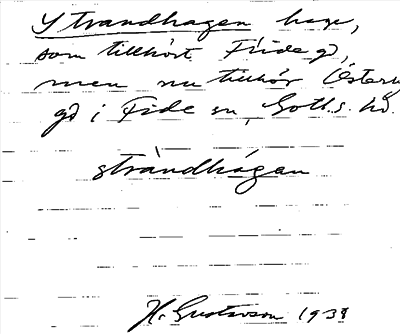 Strandhagen hage,
som tillhört Fide gd,
men nu tillhör Österg
gd i Fide sn, Gotl. s. hd.
stràndhágen
H. Gustavson 1938